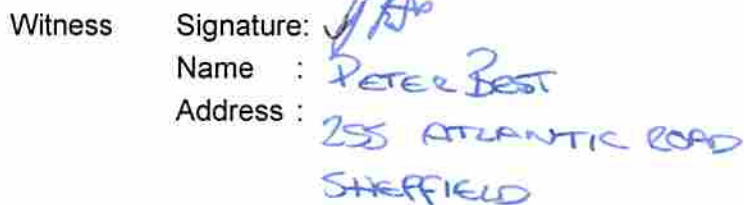 Witness Signature:
Name : PETER BEST
Address :
255 ATLANTIC ROAD
SHEFFIELD